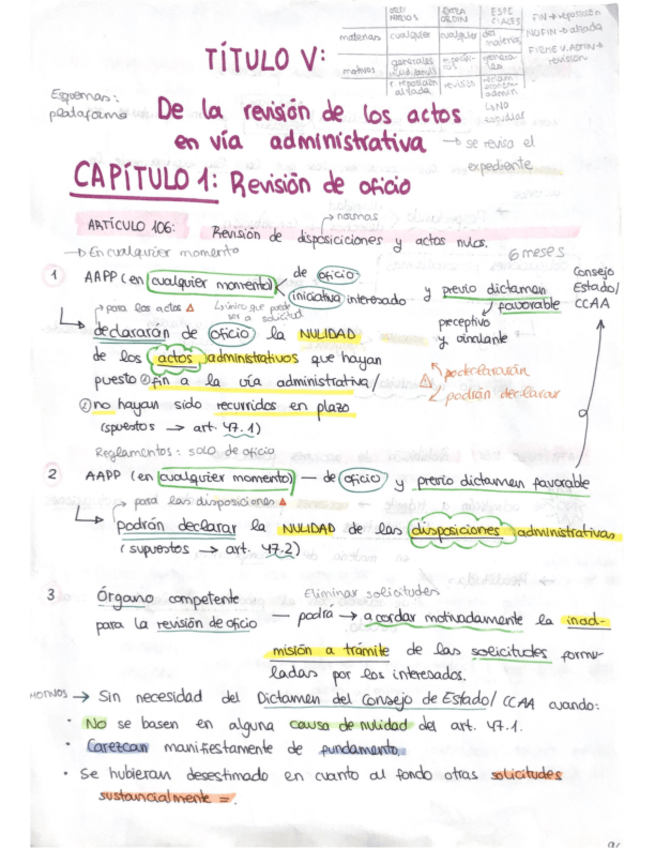 ORDI NARIOS EXTRA ORDIN ESPE CIALES FIN → reposición
materias cualquier cualquier det materias NO FIN → alzada
motivos generales generales FIRME V. ADTIVA → revisión
r. reposición alzada revisión
TÍTULO V:
Esquemas: plataforma
De la revisión de los actos
en vía administrativa → se revisa el expediente
CAPÍTULO 1: Revisión de oficio
→ normas
ARTÍCULO 106: Revisión de disposiciciones y actos nulos.
→ En cualquier momento 6 meses
1 AAPP (en cualquier momento) de oficio
iniciativa interesado y previo dictamen favorable Consejo Estado/ CCAA
→ para los actos ⚠ ↳ único que puede ser a solicitud preceptivo y vinculante
declararán de oficio la NULIDAD
de los actos administrativos que hayan
puesto ① fin a la vía administrativa/ ⚠ declararán
② no hayan sido recurridos en plazo podrán declarar
(spuestos → art. 47.1)
Reglamentos: solo de oficio
2 AAPP (en cualquier momento) — de oficio y previo dictamen favorable
→ para las disposiciones ⚠
podrán declarar la NULIDAD de las disposiciones administrativas
(supuestos → art. 47.2)
3 Órgano competente Eliminar solicitudes
para la revisión de oficio — podrá → acordar motivadamente la inad-
misión a trámite de las solicitudes formu-
ladas por los interesados.
MOTIVOS → Sin necesidad del Dictamen del Consejo de Estado/ CCAA cuando:
· No se basen en alguna causa de nulidad del art. 47.1.
· Carezcan manifiestamente de fundamento.
· Se hubieran desestimado en cuanto al fondo otras solicitudes
sustancialmente =.